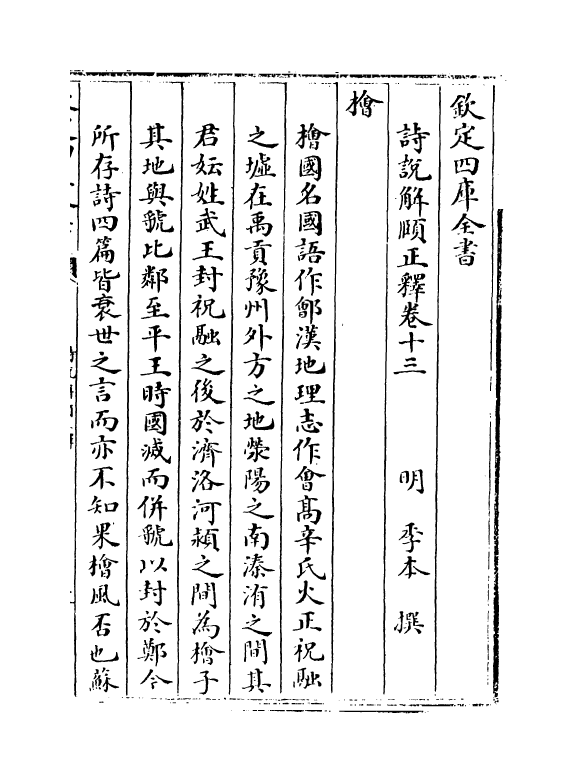 欽定四庫全書
詩說解頤正釋卷十三　明　季本　撰
檜
檜國名國語作鄶漢地理志作會髙辛氏火正祝融
之墟在禹貢豫州外方之地滎陽之南溱洧之間其
君妘姓武王封祝融之後於濟洛河潁之間為檜子
其地與虢比鄰至平王時國滅而併虢以封於鄭今
所存詩四篇皆衰世之言而亦不知果檜風否也蘇